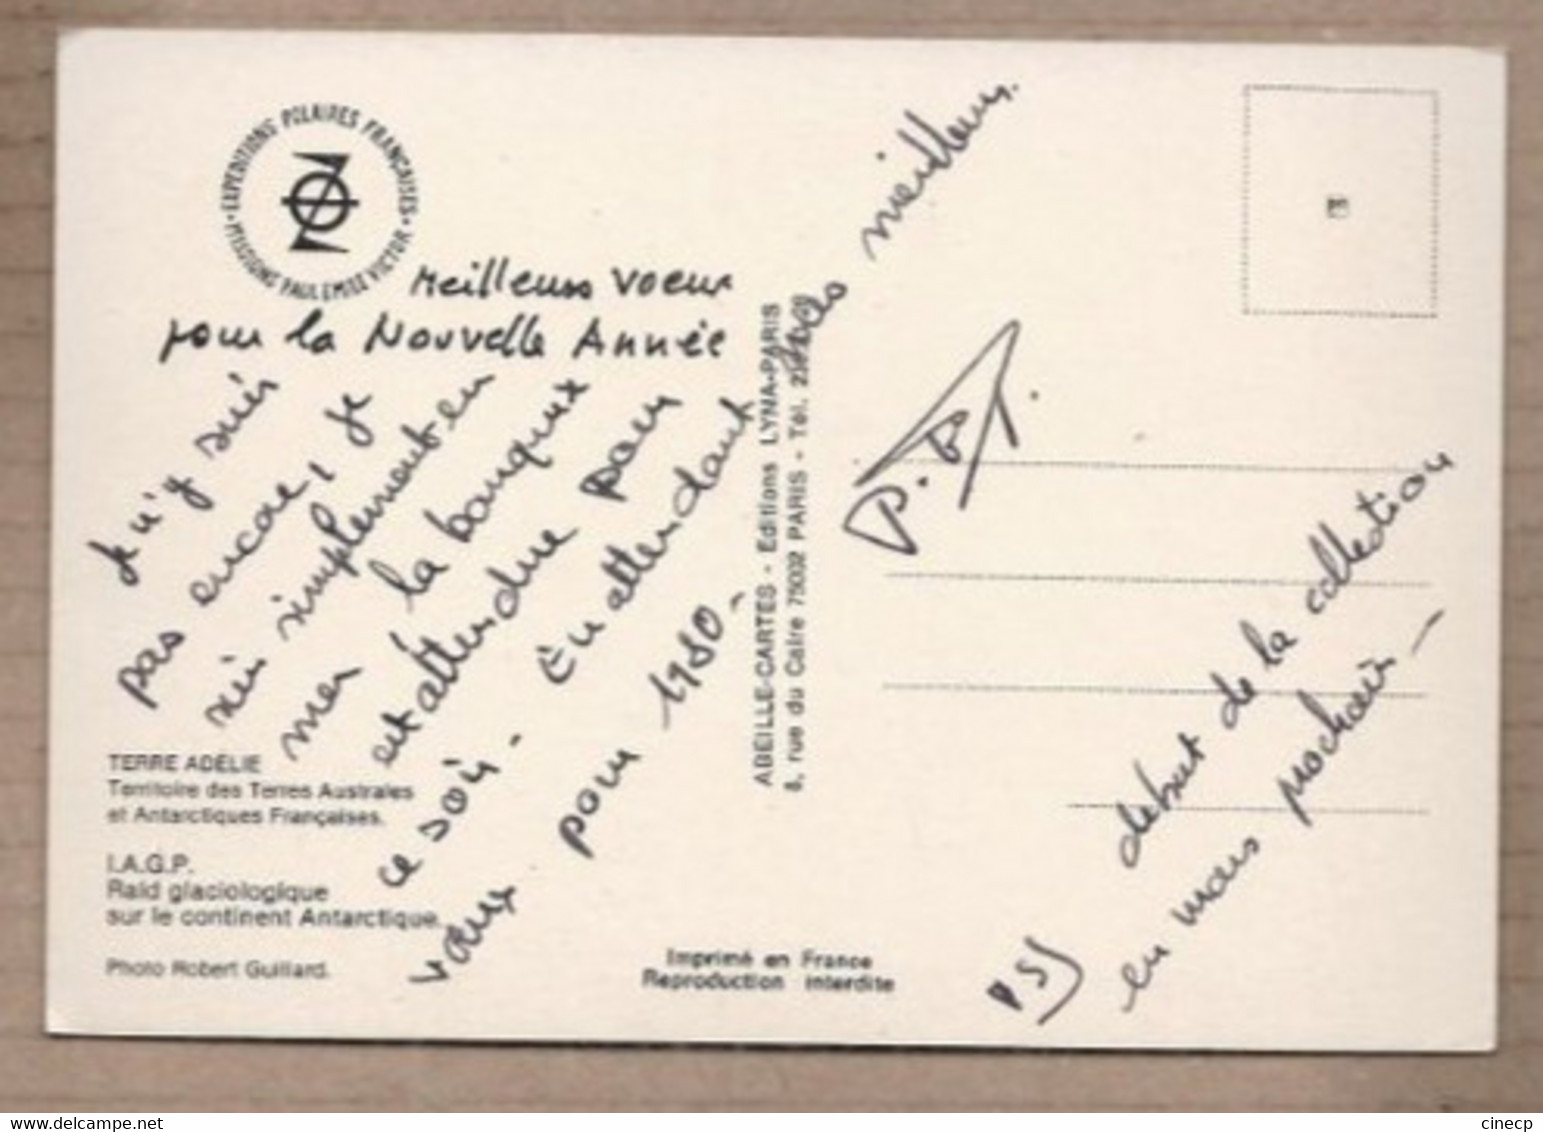 EXPEDITIONS POLAIRES FRANÇAISES
MISSIONS PAUL EMILE VICTOR
Meilleurs Voeux
pour la Nouvelle Année
Je n'y suis
pas encore, je
suis simplement en
mer, la banquise
est attendue pour
ce soir. En attendant mes meilleurs
voeux pour 1980.
P.P.T.
PS)
debut de la collection
en mars prochain
TERRE ADÉLIE
Territoire des Terres Australes
et Antarctiques Françaises.
I.A.G.P.
Raid glaciologique
sur le continent Antarctique.
Photo Robert Guillard.
ABEILLE-CARTES - Editions LYNA-PARIS
8, rue du Caire 75002 PARIS - Tél.
Imprimé en France
Reproduction interdite
cinecp